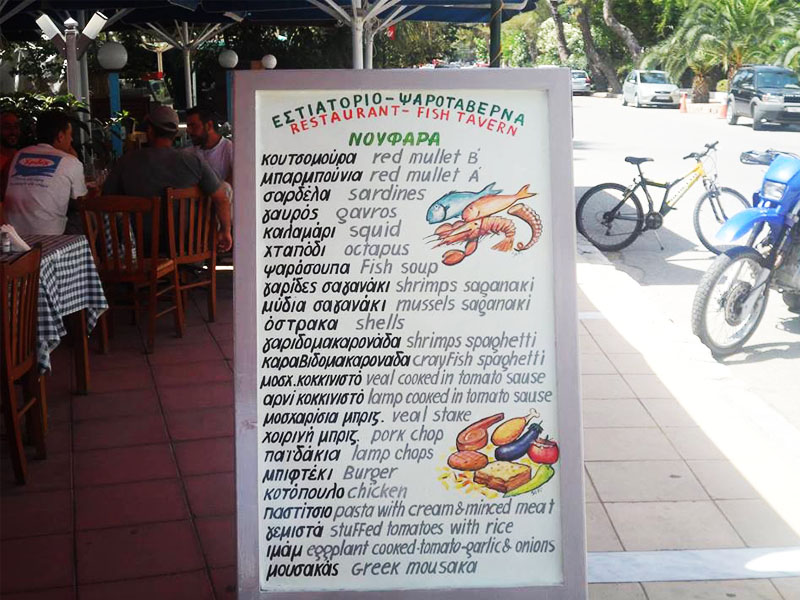 ΕΣΤΙΑΤΟΡΙΟ-ΨΑΡΟΤΑΒΕΡΝΑ
RESTAURANT- FISH TAVERN
ΝΟΥΦΑΡΑ
κουτσομούρα red mullet B'
μπαρμπούνια red mullet A'
σαρδέλα sardines
γαυρός gavros
καλαμάρι squid
χταπόδι octapus
ψαρόσουπα Fish soup
γαρίδες σαγανάκι shrimps saganaki
μύδια σαγανάκι mussels saganaki
όστρακα shells
γαριδομακαρονάδα shrimps spaghetti
καραβιδομακαροναδα crayFish spaghetti
μοσχ.κοκκινιστό veal cooked in tomato sause
αρνί κοκκινιστό lamp cooked in tomato sause
μοσχαρίσια μπριζ. veal stake
χοιρινή μπριζ. pork chop
παϊδάκια lamp chops
μπιφτέκι Burger
κοτόπουλο chicken
παστίτσιο pasta with cream & minced meat
γεμιστά stuffed tomatoes with rice
ιμάμ eggplant cooked-tomato-garlic & onions
μουσακάς Greek mousaka